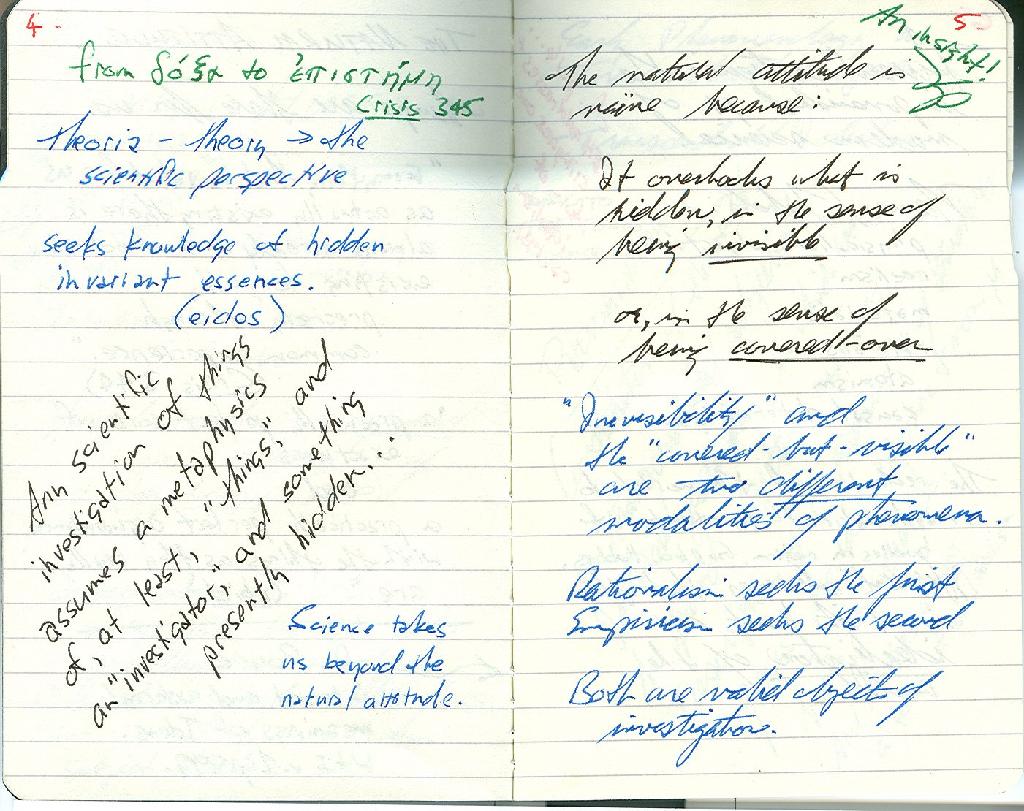 4.
from δόξα to ἐπιστήμη
Crisis 345
theoria - theory → the
scientific perspective
seeks knowledge of hidden
invariant essences.
(eidos)
Any scientific
investigation of things
assumes a metaphysics
of, at least, "things,"
an "investigator," and something
presently hidden...
and
Science takes
us beyond the
natural attitude.
5.
An insight!
The natural attitude is
naïve because:
It overlooks what is
hidden, in the sense of
being invisible
or, in the sense of
being covered-over
"Invisibility" and
the "covered-but-visible"
are two different
modalities of phenomena.
Rationalism seeks the first
Empiricism seeks the second
Both are valid objects of
investigation.